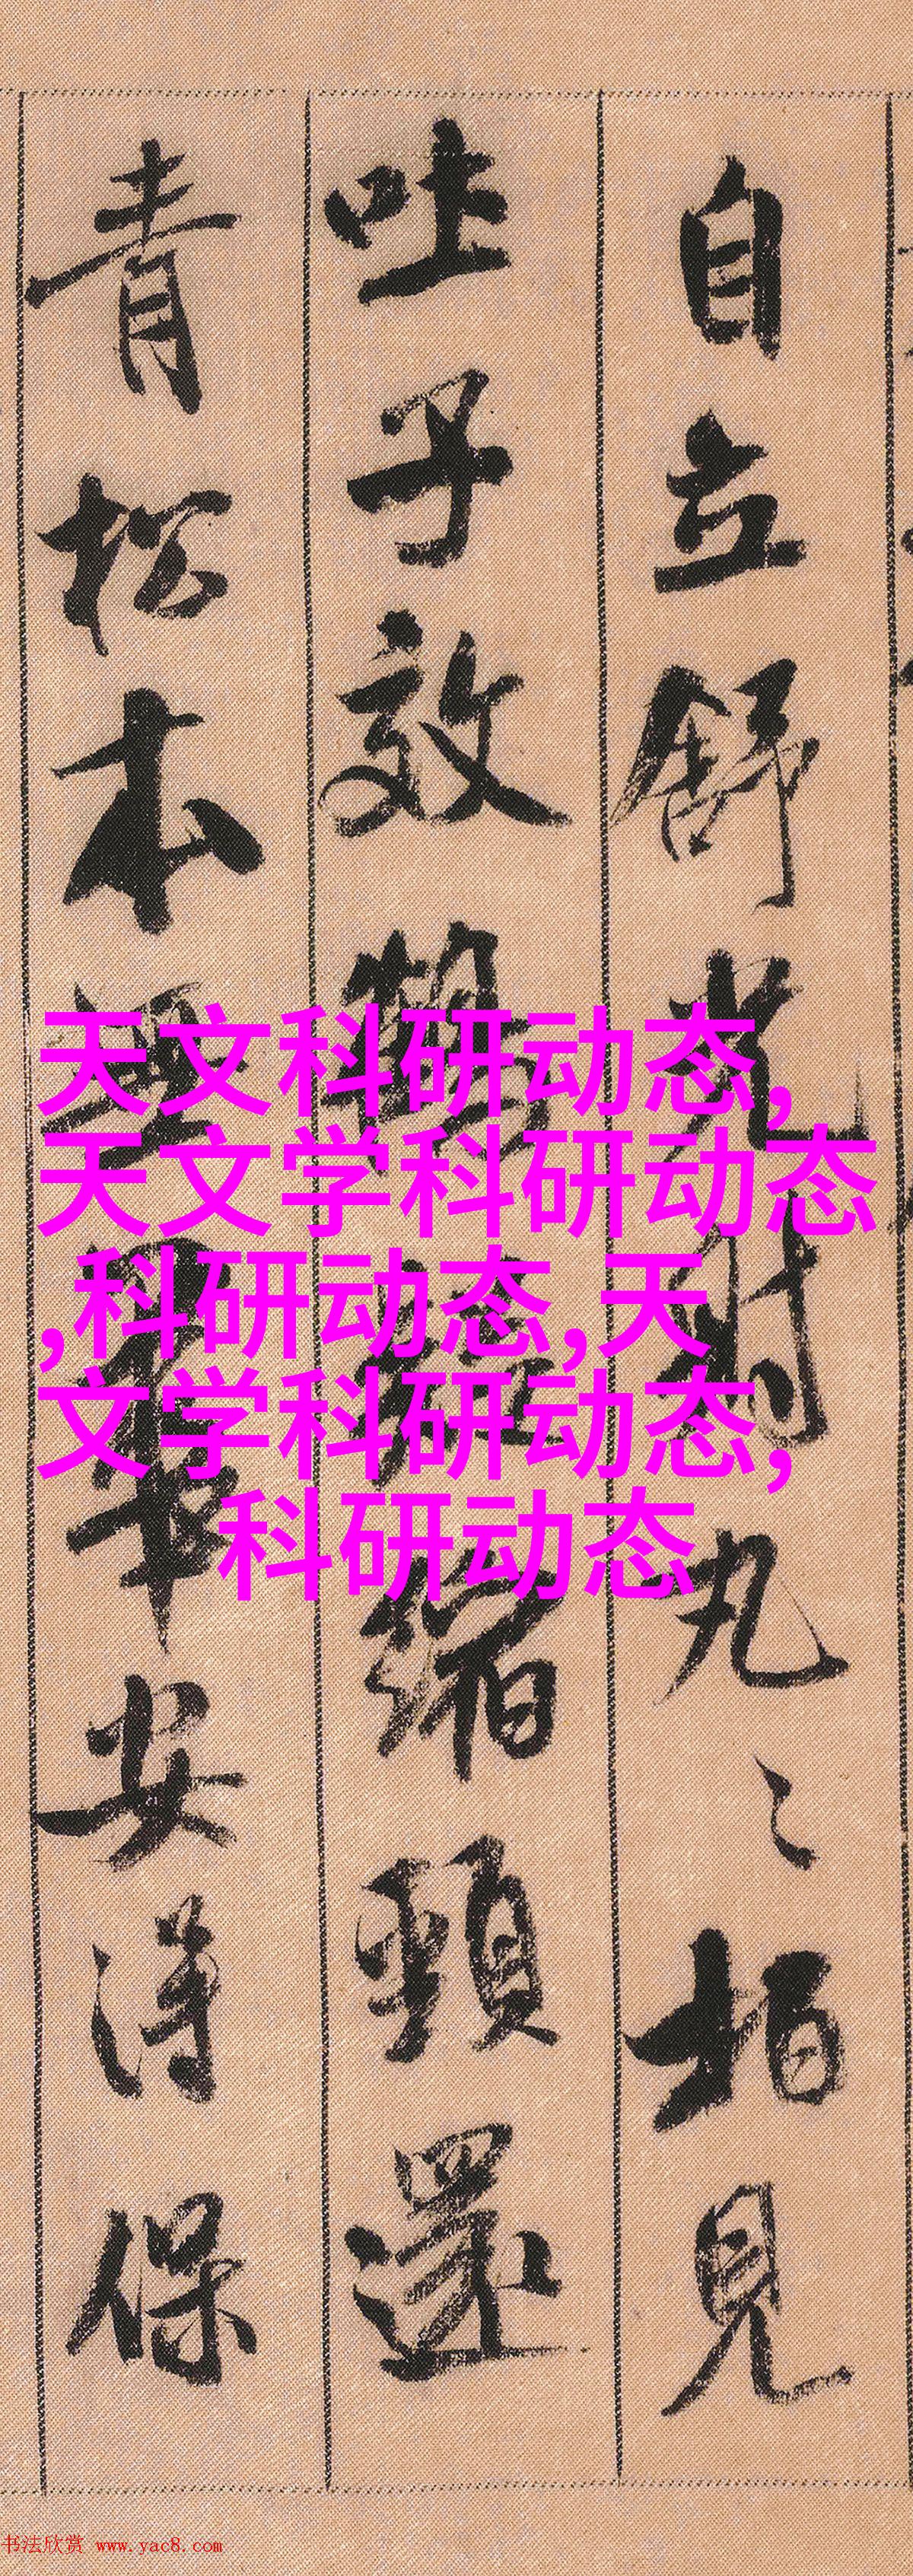 自立舒光射丸〻柏見
吐子效鶴疑縮頸還
青松本無華安得保
天文科研动态,
天文学科研动态
,科研动态,天
文学科研动态,
科研动态
书法欣赏 www.yac8.com